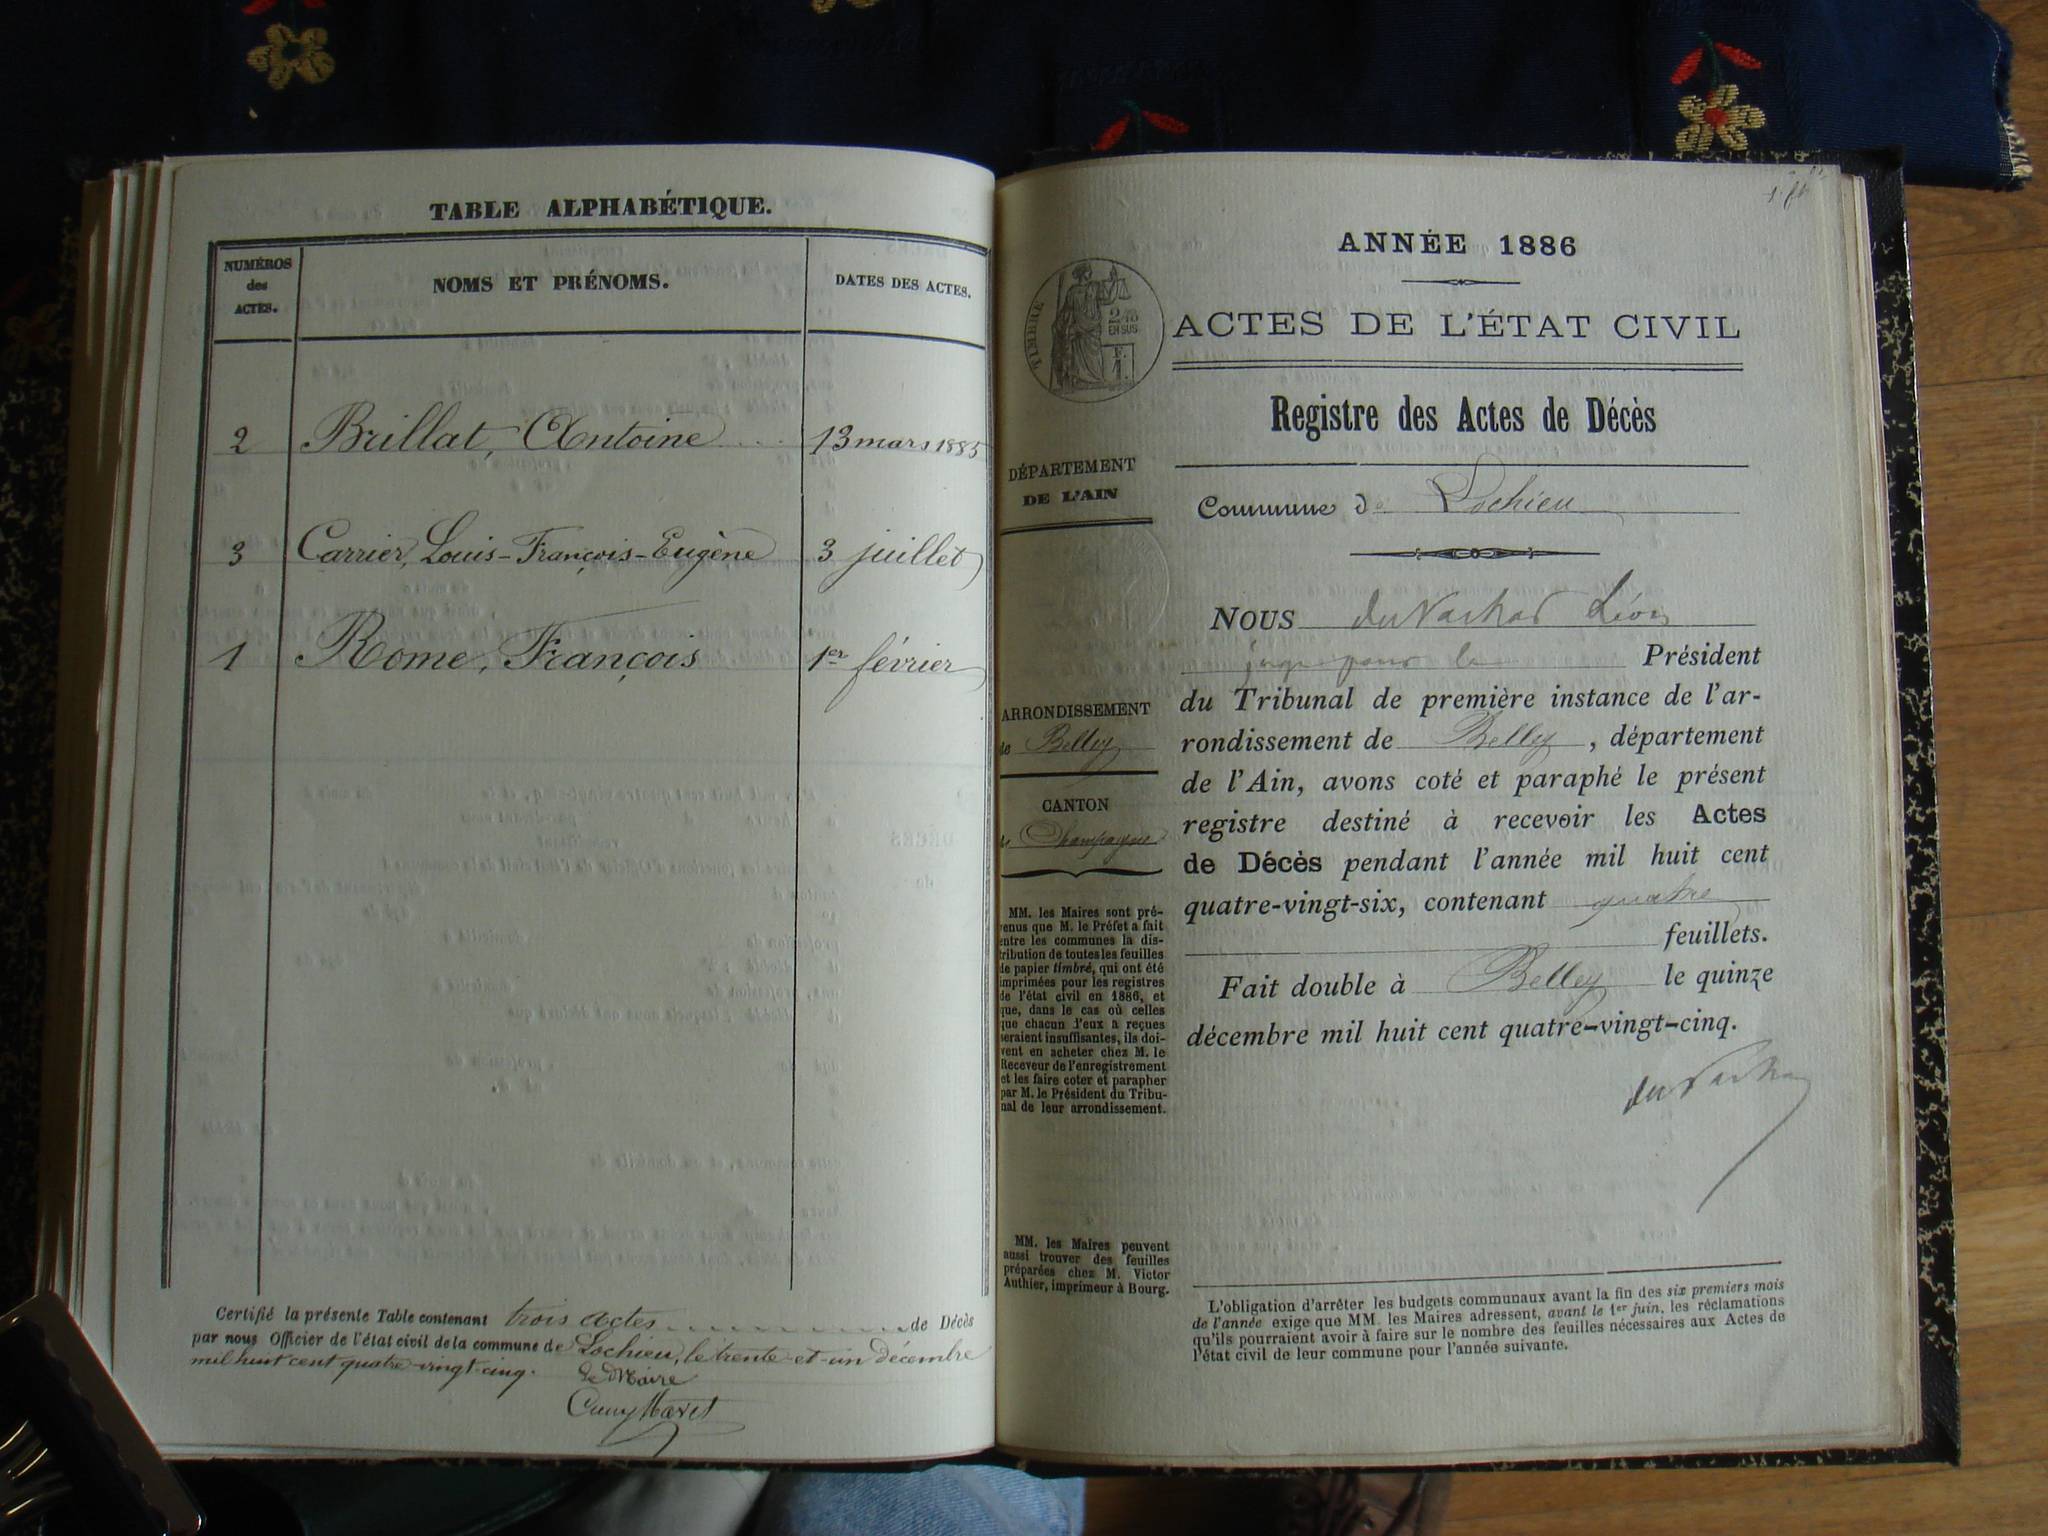 TABLE ALPHABÉTIQUE.
NUMÉROS
des
ACTES.
NOMS ET PRÉNOMS.
DATES DES ACTES.
2 Brillat, Antoine 13 mars 1885
3 Carrier, Louis-François-Eugène 3 juillet
1 Rome, François 1er février
Certifié la présente Table contenant trois actes de Décès
par nous Officier de l'état civil de la commune de Lochieu, le trente-et-un décembre
mil huit cent quatre-vingt-cinq.
Le Maire
ANNÉE 1886
TIMBRE
2/10
EN SUS
ACTES DE L'ÉTAT CIVIL
Registre des Actes de Décès
DÉPARTEMENT
DE L'AIN
Commune de Lochieu
ARRONDISSEMENT
de Belley
CANTON
de Champagne
MM. les Maires sont pré-
venus que M. le Préfet a fait
entre les communes la dis-
tribution de toutes les feuilles
de papier timbré, qui ont été
imprimées pour les registres
de l'état civil en 1886, et
que, dans le cas où celles
que chacun d'eux a reçues
seraient insuffisantes, ils doi-
vent en acheter chez M. le
Receveur de l'enregistrement
et les faire coter et parapher
par M. le Président du Tribu-
nal de leur arrondissement.
MM. les Maires peuvent
aussi trouver des feuilles
préparées chez M. Victor
Authier, imprimeur à Bourg.
NOUS Léon
juge pour le Président
du Tribunal de première instance de l'ar-
rondissement de Belley, département
de l'Ain, avons coté et paraphé le présent
registre destiné à recevoir les Actes
de Décès pendant l'année mil huit cent
quatre-vingt-six, contenant quatre
feuillets.
Fait double à Belley le quinze
décembre mil huit cent quatre-vingt-cinq.
L'obligation d'arrêter les budgets communaux avant la fin des six premiers mois
de l'année exige que MM. les Maires adressent, avant le 1er juin, les réclamations
qu'ils pourraient avoir à faire sur le nombre des feuilles nécessaires aux Actes de
l'état civil de leur commune pour l'année suivante.